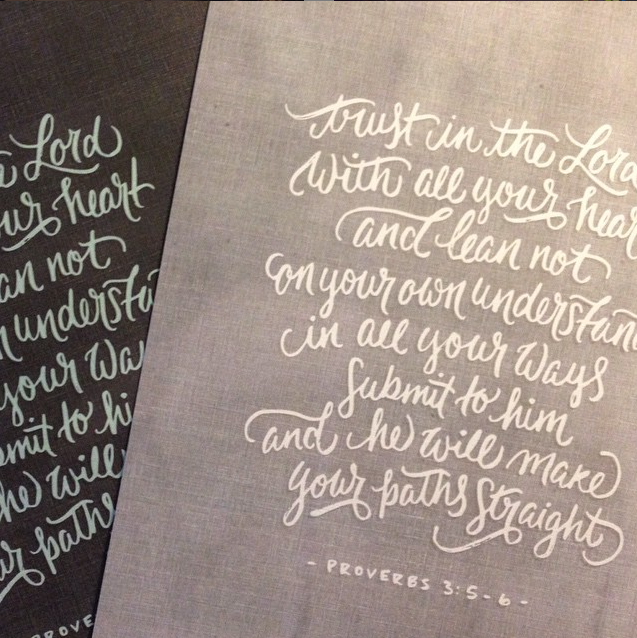 e Lord
our heart
an not
n understa
your Wa
bmit to hi
he will
ur paths
PROVE
trust in the Lord
With all your hear
and lean not
on your own understand
in all your Ways
submit to him
and he will make
your paths straight
- PROVERBS 3:5-6 -